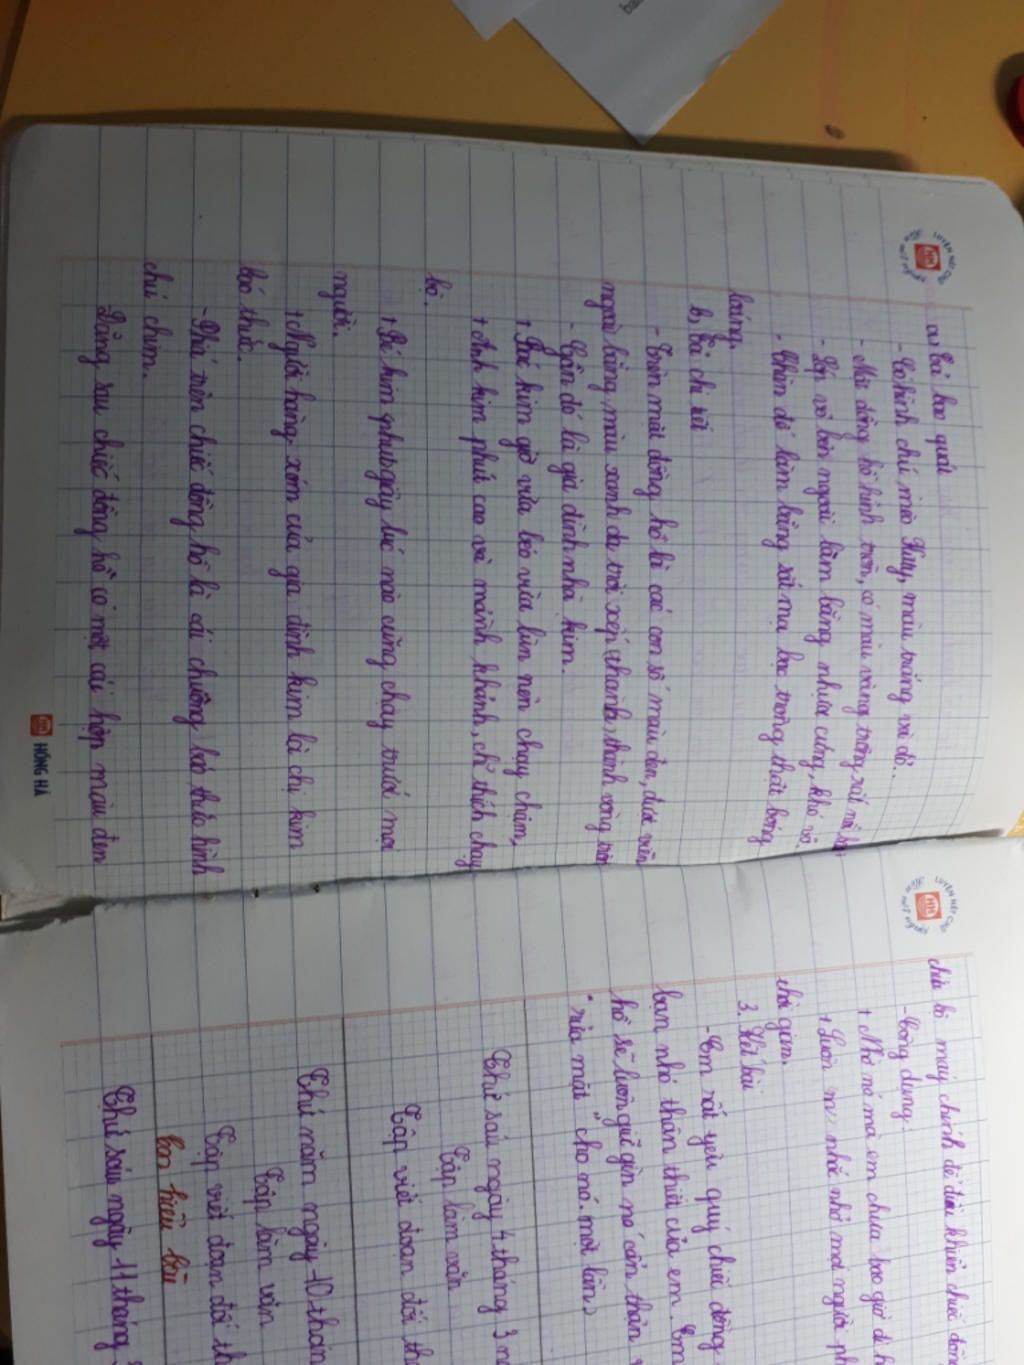 a, Tả bao quát
- Có hình chú mèo Kitty, màu trắng và đỏ.
- Mặt đồng hồ hình tròn, có màu vàng trông rất nổi bật
- Lớp vỏ bên ngoài làm bằng nhựa cứng, khó vỡ.
- Chân đế làm bằng sắt mạ bạc trông thật bóng
loáng.
b, Tả chi tiết
- Trên mặt đồng hồ là các con số màu đen, được viền
ngoài bằng màu xanh da trời xếp thành vòng tròn
- Cần đó là gia đình nhà kim.
+ Bác kim giờ vừa béo vừa lùn nên chạy chậm,
+ Anh kim phút cao và mảnh khảnh, chỉ thích chạy
bộ.
+ Bé kim giây lúc nào cũng chạy trước mọi
người.
+ Người hàng xóm của gia đình kim là chị kim
báo thức.
- Phía trên chiếc đồng hồ là cái chuông báo thức hình
chú chim.
Đằng sau chiếc đồng hồ có một cái hộp màu đen
HỒNG HÀ
LUYỆN NÉT CHỮ
HH
chứa bộ máy chính để điều khiển chiếc đồn
- Công dụng:
+ Nhờ nó mà em chưa bao giờ đi h
+ Luôn nhắc nhở mọi người ph
thời gian.
3. Kết bài
- Em rất yêu quý chiếc đồng
bạn nhỏ thân thiết của em. Em
hồ sẽ luôn giữ gìn nó cẩn thận
"rửa mặt" cho nó một lần>
Thứ sáu ngày 4 tháng 3 n
Tập làm văn
Tập viết đoạn đối th
Thứ năm ngày 10 thán
Tập làm văn
Tập viết đoạn đối th
Em hiểu bài
Thứ sáu ngày 11 tháng